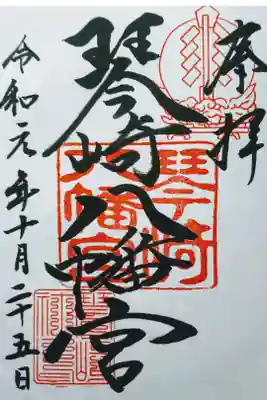 奉拝
琴崎八幡宮
琴崎
八幡宮
令和元年十月二十五日